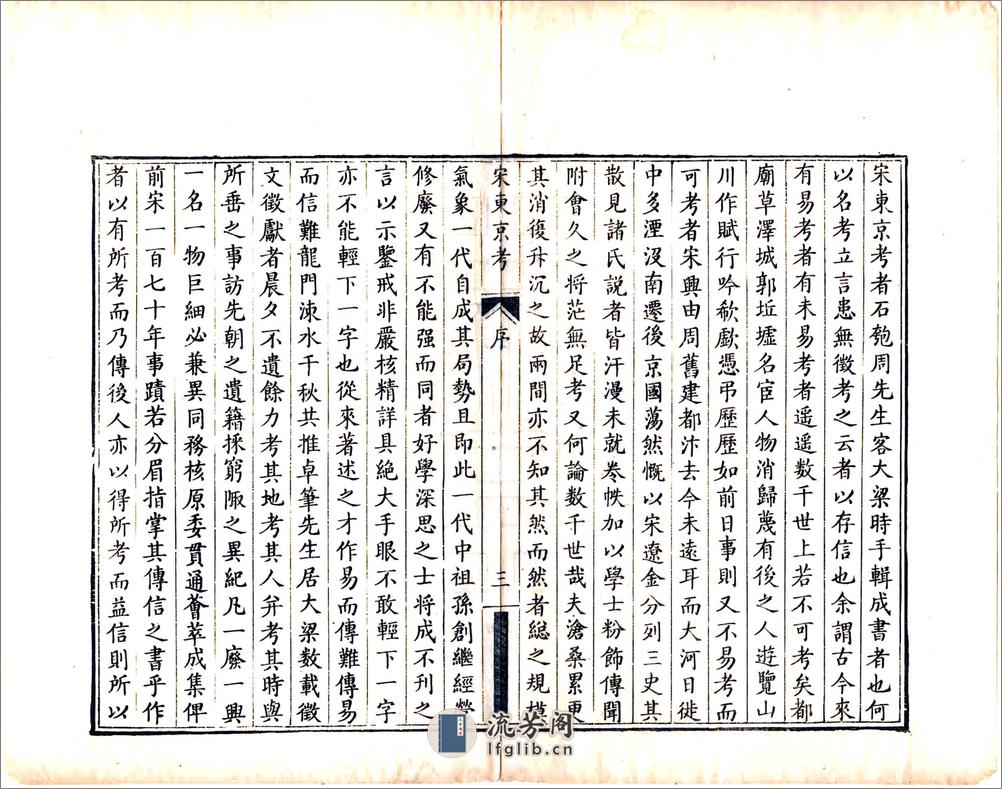 宋東京考者石匏周先生客大梁時手輯成書者也何
以名考立言患無徵考之云者以存信也余謂古今來
有易考者有未易考者遥遥數千世上若不可考矣都
廟草澤城郭坵墟名宦人物消歸蔑有後之人遊覽山
川作賦行吟欷歔憑弔歷歷如前日事則又不易考而
可考者宋興由周舊建都汴去今未遠耳而大河日徙
中多湮沒南遷後京國蕩然慨以宋遼金分列三史其
散見諸氏説者皆汗漫未就卷帙加以學士粉飾傳聞
附會久之將茫無足考又何論數千世哉夫滄桑累更
其消復升沉之故兩間亦不知其然而然者緫之規模
宋東京考
序
三
氣象一代自成其局勢且即此一代中祖孫創繼經營
修廢又有不能强而同者好學深思之士將成不刊之
言以示鑒戒非嚴核精詳具絶大手眼不敢輕下一字
亦不能輕下一字也從來著述之才作易而傳難傳易
而信難龍門涑水千秋共推卓筆先生居大梁數載徵
文徵獻者晨夕不遺餘力考其地考其人并考其時與
所垂之事訪先朝之遺籍採窮陬之異紀凡一廢一興
一名一物巨細必兼異同務核原委貫通薈萃成集俾
前宋一百七十年事蹟若分眉指掌其傳信之書乎作
者以有所考而乃傳後人亦以得所考而益信則所以
流芳阁
lfglib.cn